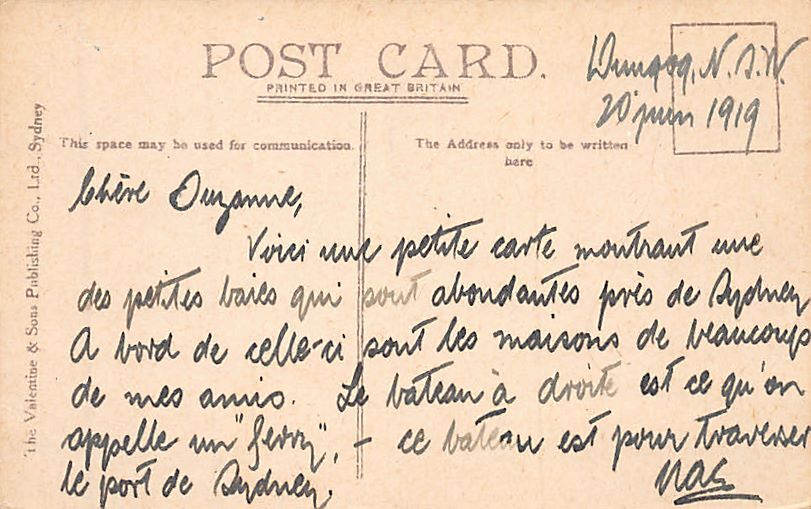 POST CARD.
PRINTED IN GREAT BRITAIN
Dungog, N.S.W.
20 juin 1919
This space may be used for communication.
The Address only to be written
here
The Valentine & Sons Publishing Co., Ltd., Sydney
Chère Suzanne,
Voici une petite carte montrant une
des petites baies qui sont abondantes près de Sydney
A bord de celle-ci sont les maisons de beaucoup
de mes amis. Le bateau à droite est ce qu'on
appelle un "ferry", - ce bateau est pour traverser
le port de Sydney.